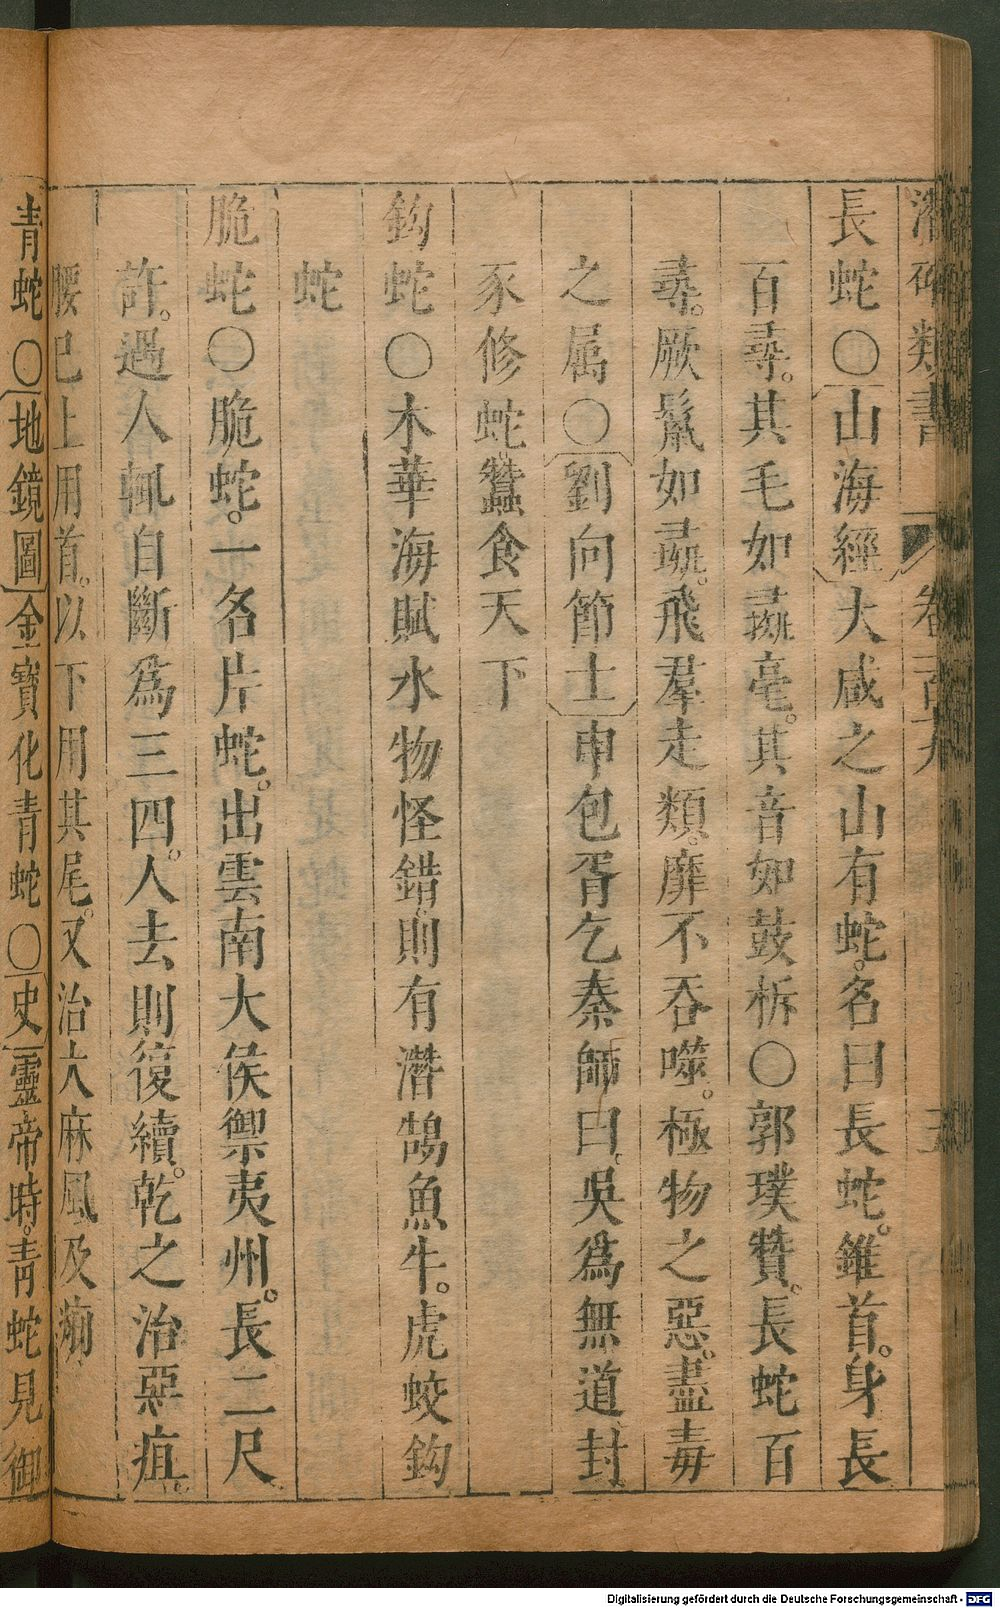 潛確類書 卷一百十九 五
長蛇○山海經大咸之山有蛇。名曰長蛇。錐首。身長
百尋。其毛如彘毫。其音如鼓柝○郭璞贊。長蛇百
尋。厥鬣如彘。飛羣走類。靡不吞噬。極物之惡。盡毒
之屬○劉向節士申包胥乞秦師曰。吳為無道封
豕修蛇蠶食天下
鈎蛇○木華海賦水物怪錯。則有潛鵠魚牛。虎蛟鈎
蛇
脆蛇○脆蛇。一名片蛇。出雲南大侯禦夷州。長二尺
許。遇人輒自斷為三四。人去則復續。乾之治惡疽
腰已上用首。以下用其尾。又治大麻風及痢
青蛇○地鏡圖金寶化青蛇○史靈帝時。青蛇見御
Digitalisierung gefördert durch die Deutsche Forschungsgemeinschaft - DFG